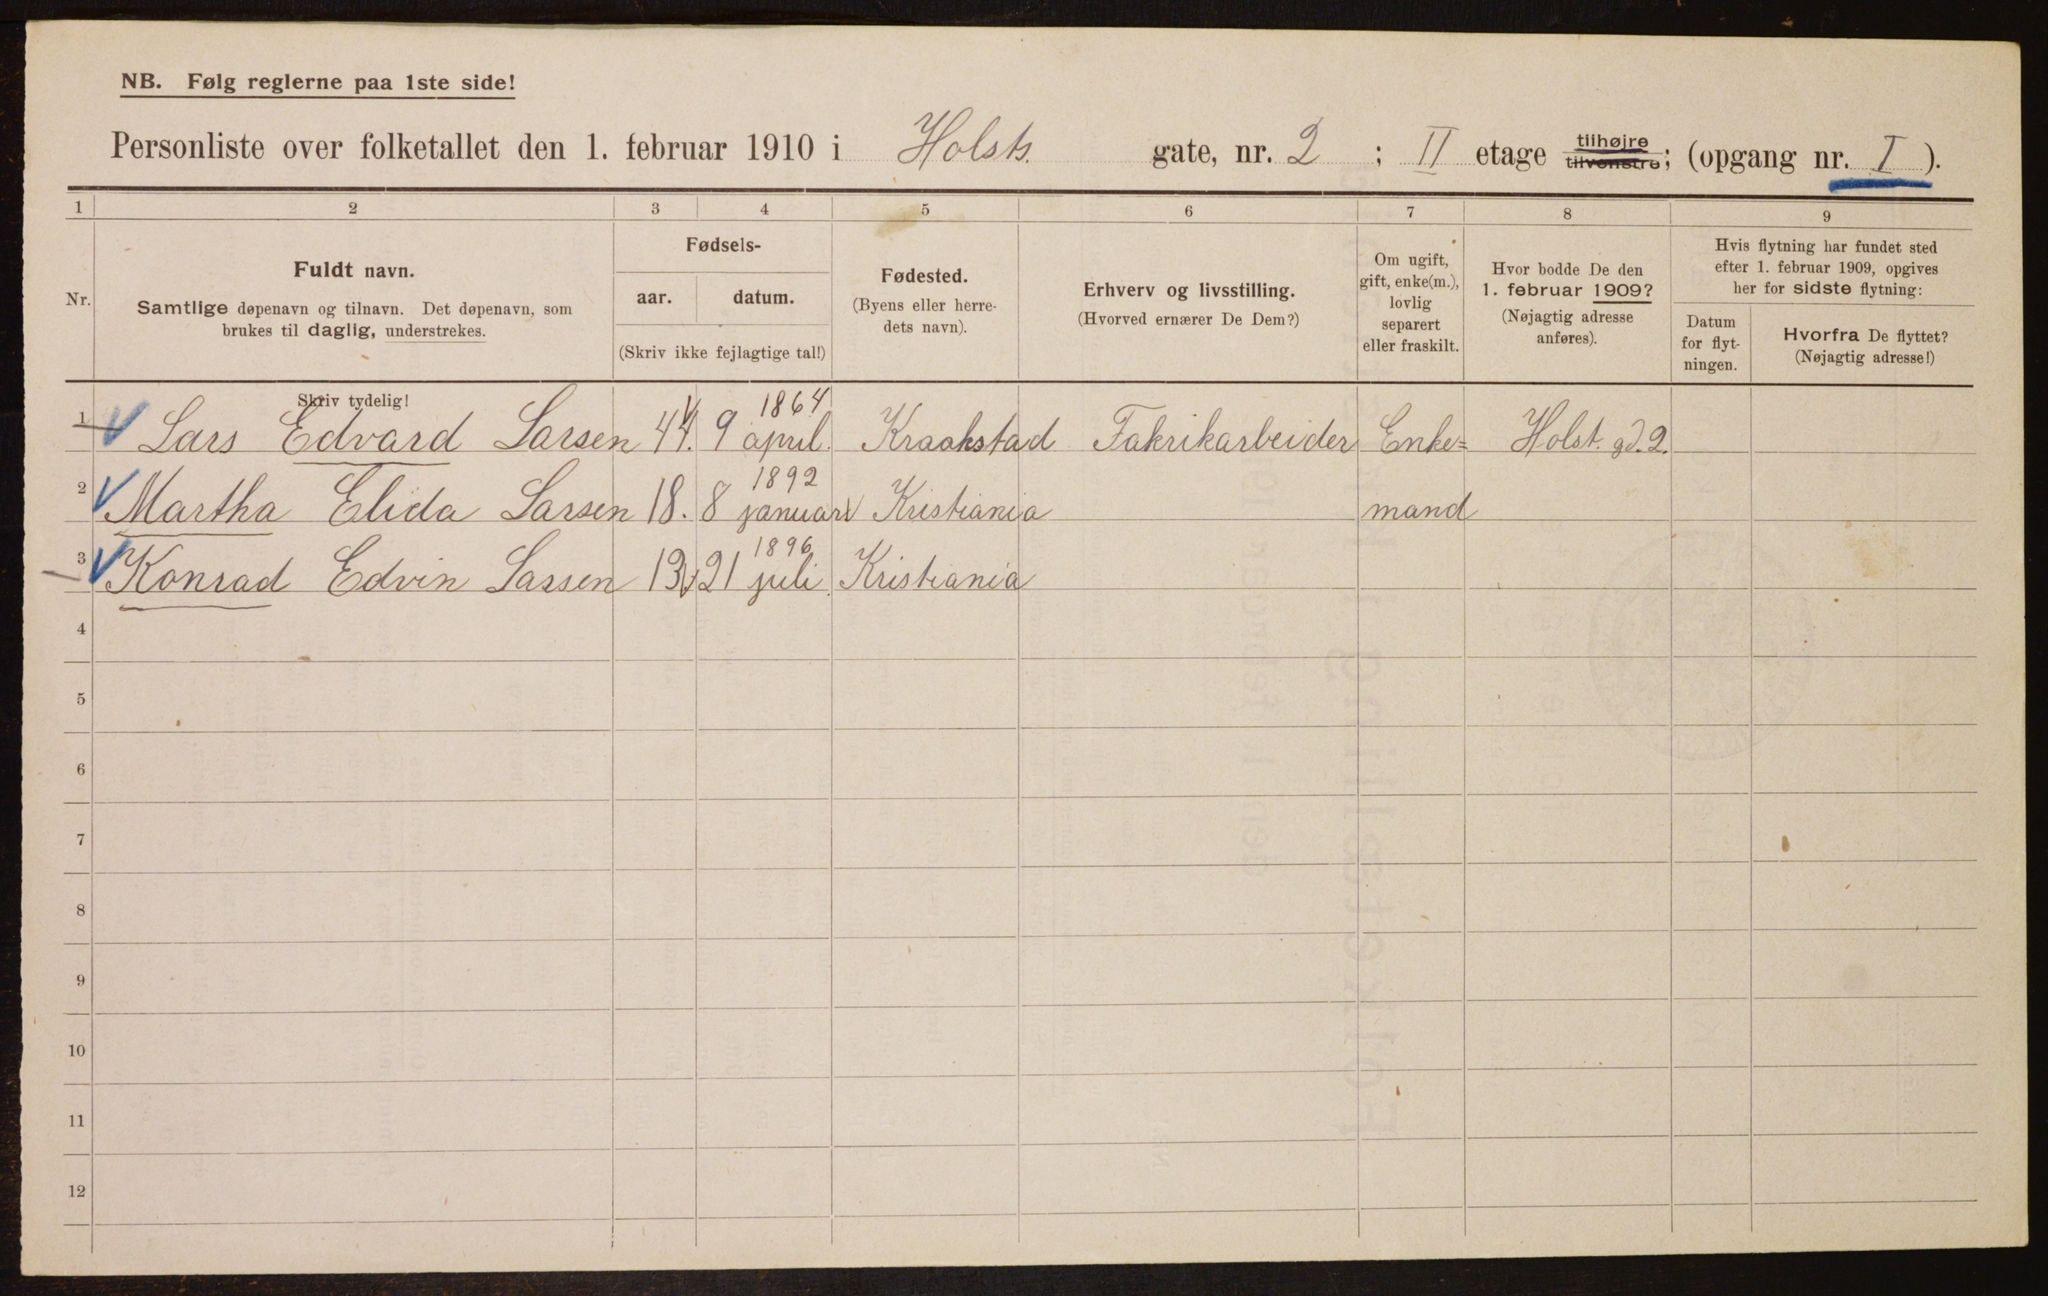 NB. Følg reglerne paa 1ste side!
Personliste over folketallet den 1. februar 1910 i Holsts. gate, nr. 2 ; II etage tilhøjre tilvenstre; (opgang nr. I ).
1 2 3 4 5 6 7 8 9
Nr.
Fuldt navn.
Samtlige døpenavn og tilnavn. Det døpenavn, som
brukes til daglig, understrekes.
Skriv tydelig!
Fødsels-
aar. datum.
(Skriv ikke fejlagtige tal!)
Fødested.
(Byens eller herre-
dets navn).
Erhverv og livsstilling.
(Hvorved ernærer De Dem?)
Om ugift,
gift, enke(m.),
lovlig
separert
eller fraskilt.
Hvor bodde De den
1. februar 1909?
(Nøjagtig adresse
anføres).
Hvis flytning har fundet sted
efter 1. februar 1909, opgives
her for sidste flytning:
Datum
for flyt-
ningen.
Hvorfra De flyttet?
(Nøjagtig adresse!)
1864
1 Lars Edvard Larsen 44. 9 april. Kraakstad Fakrikarbeider Enke= Holst. gd. 2.
1892
2 Martha Elida Larsen 18. 8 januar Kristiania mand
1896
3 Konrad Edvin Larsen 13 21 juli Kristiania
4
5
6
7
8
9
10
11
12